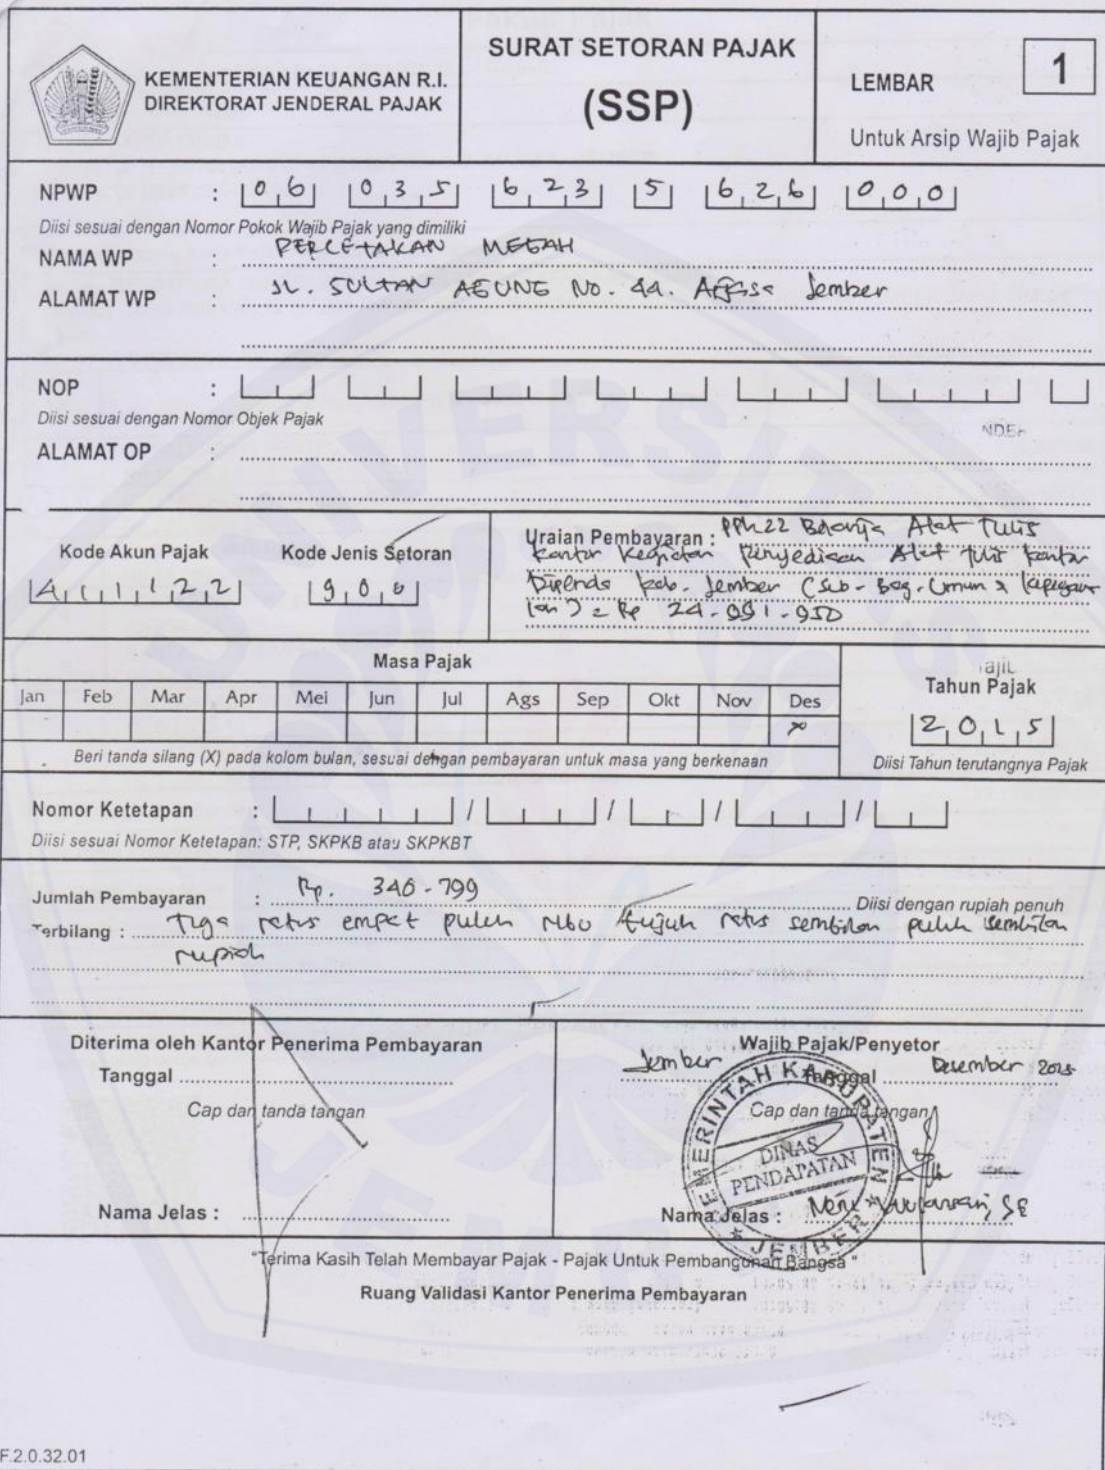 KEMENTERIAN KEUANGAN R.I.
DIREKTORAT JENDERAL PAJAK
SURAT SETORAN PAJAK
(SSP)
LEMBAR 1
Untuk Arsip Wajib Pajak
NPWP : 06 035 623 5 626 000
Diisi sesuai dengan Nomor Pokok Wajib Pajak yang dimiliki
NAMA WP : PERCETAKAN MEGAH
ALAMAT WP : JL. SULTAN AGUNG No. 44. Jember
NOP :
Diisi sesuai dengan Nomor Objek Pajak
ALAMAT OP :
Kode Akun Pajak
411122
Kode Jenis Setoran
900
Uraian Pembayaran : PPh 22 Belanja Alat Tulis
Kantor Kegiatan Penyediaan Alat Tulis Kantor
Dipenda Kab. Jember (Sub-Bag. Umum &
= Rp 24.991.950
Masa Pajak
Jan Feb Mar Apr Mei Jun Jul Ags Sep Okt Nov Des
X
Beri tanda silang (X) pada kolom bulan, sesuai dengan pembayaran untuk masa yang berkenaan
Tahun Pajak
2015
Diisi Tahun terutangnya Pajak
Nomor Ketetapan : / / / /
Diisi sesuai Nomor Ketetapan: STP, SKPKB atau SKPKBT
Jumlah Pembayaran : Rp. 340.799 Diisi dengan rupiah penuh
Terbilang : Tiga ratus empat puluh ribu tujuh ratus sembilan puluh sembilan
rupiah
Diterima oleh Kantor Penerima Pembayaran
Tanggal
Cap dan tanda tangan
Nama Jelas :
Wajib Pajak/Penyetor
Jember Tanggal Desember 2015
Cap dan tanda tangan
PEMERINTAH KABUPATEN
DINAS
PENDAPATAN
JEMBER
Nama Jelas : SE
"Terima Kasih Telah Membayar Pajak - Pajak Untuk Pembangunan Bangsa "
Ruang Validasi Kantor Penerima Pembayaran
F.2.0.32.01
UNIVERSITAS
JEMBER